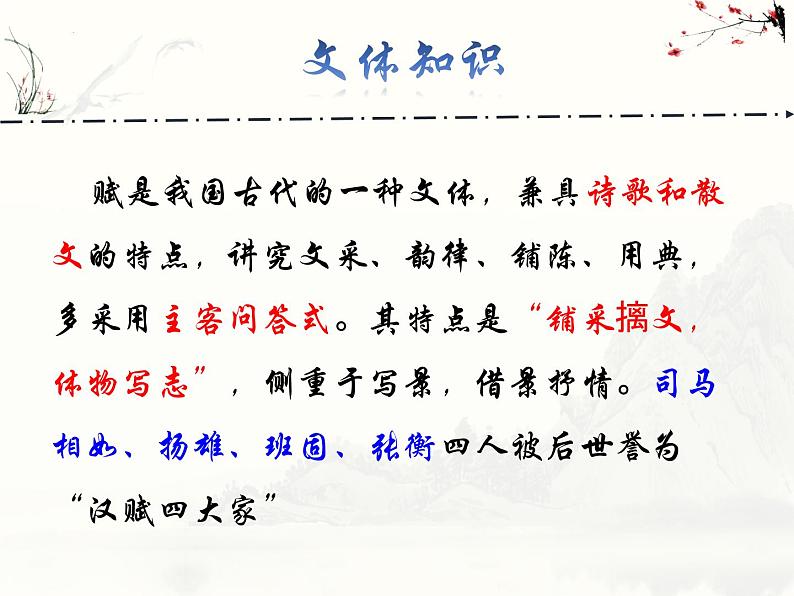 文体知识
赋是我国古代的一种文体，兼具诗歌和散
文的特点，讲究文采、韵律、铺陈、用典，
多采用主客问答式。其特点是“铺采摛文，
体物写志”，侧重于写景，借景抒情。司马
相如、扬雄、班固、张衡四人被后世誉为
“汉赋四大家”